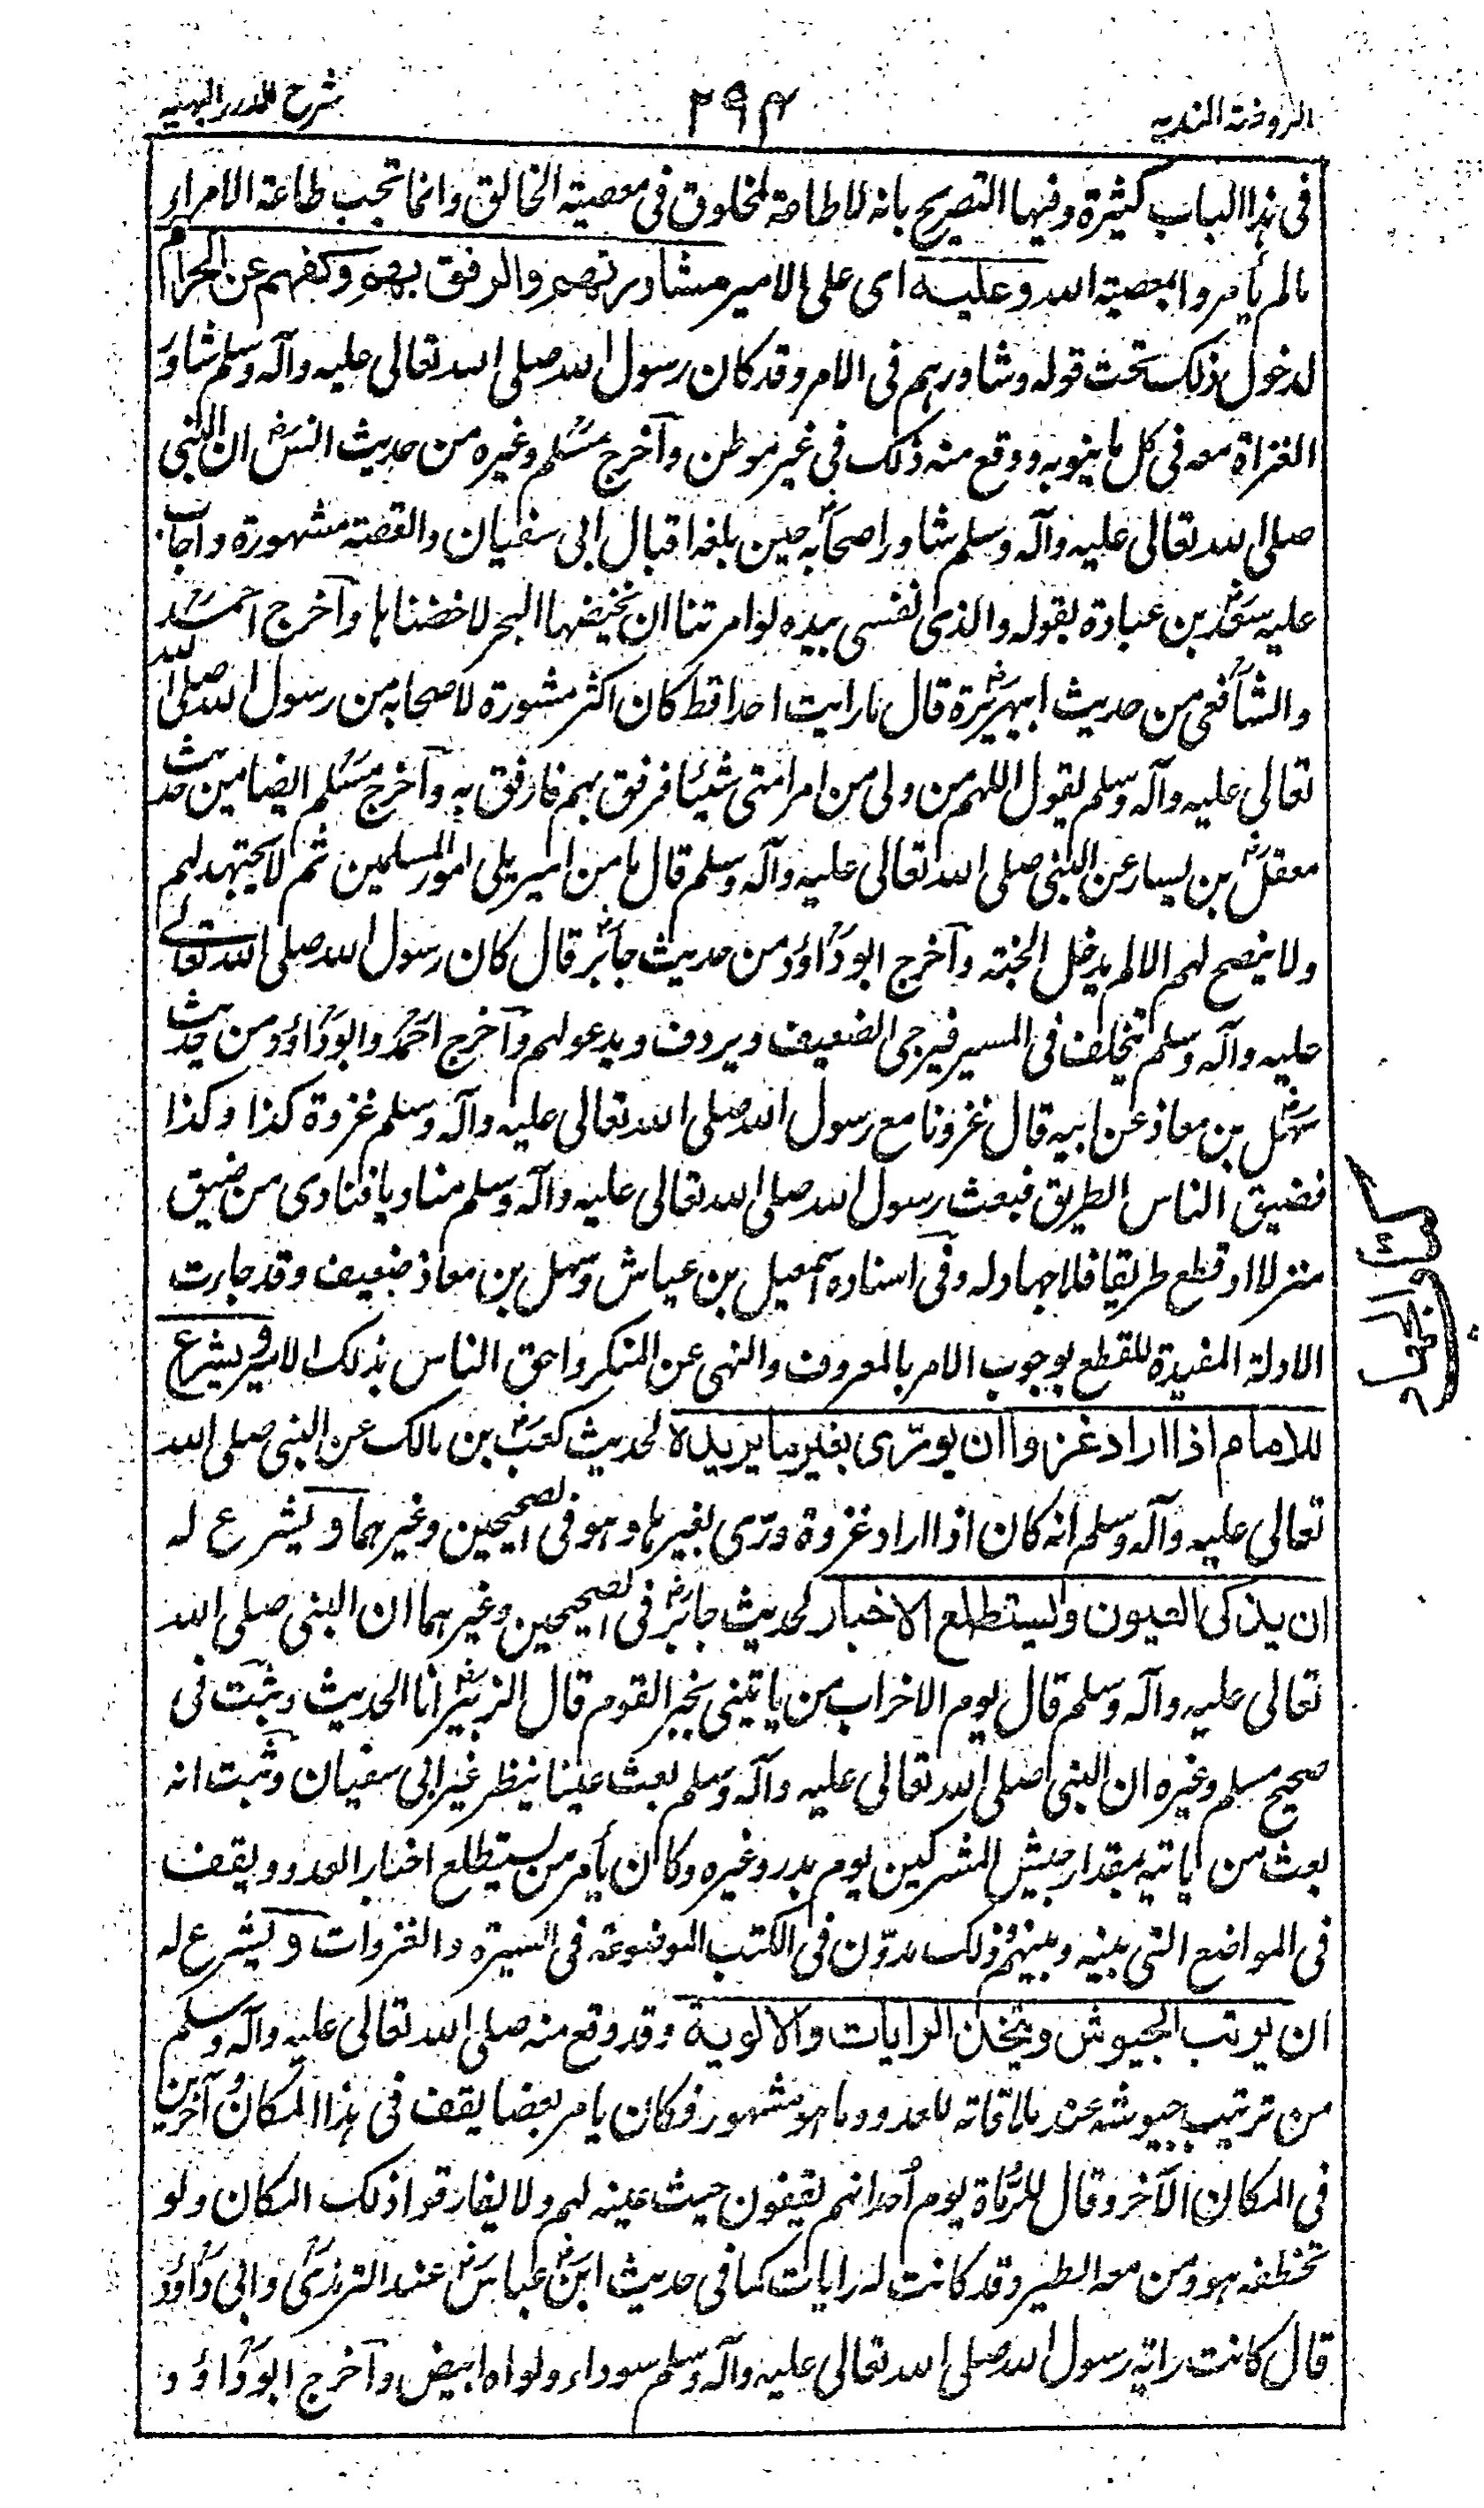 الروضة الندية ٢٩٤ شرح الدرر البهية
فى هذا الباب كثيرة وفيها التصريح بانه لا طاعة لمخلوق فى معصية الخالق وانما تجب طاعة الامراء
ما لم يأمروا بمعصية الله وعليه اى على الامير مشاورتهم والرفق بهم وكفهم عن الحرام
لدخول ذلك تحت قوله وشاورهم فى الامر وقد كان رسول الله صلى الله تعالى عليه وآله وسلم شاور
الغزاة معه فى كل ما ينوبه ووقع منه ذلك فى غير موطن وآخرج مسلم وغيره من حديث انس ان النبى
صلى الله تعالى عليه وآله وسلم شاور اصحابه حين بلغه اقبال ابى سفيان والقصة مشهورة واجاب
عليه سعد بن عبادة بقوله والذى نفسى بيده لو امرتنا ان نخيضها البحر لاخضناها وآخرج احمد
والشافعى من حديث ابيهريرة قال ما رايت احدا قط كان اكثر مشورة لاصحابه من رسول الله صلى الله
تعالى عليه وآله وسلم يقول اللهم من ولى من امر امتى شيئا فرفق بهم فارفق به وآخرج مسلم ايضا من حديث
معقل بن يسار عن النبى صلى الله تعالى عليه وآله وسلم قال ما من امير يلى امور المسلمين ثم لا يجتهد لهم
ولا ينصح لهم الا لم يدخل الجنة وآخرج ابو داود من حديث جابر قال كان رسول الله صلى الله تعالى
عليه وآله وسلم يتخلف فى المسير فيزجى الضعيف ويردف ويدعو لهم وآخرج احمد وابو داود من حديث
سهل بن معاذ عن ابيه قال غزونا مع رسول الله صلى الله تعالى عليه وآله وسلم غزوة كذا وكذا
فضيق الناس الطريق فبعث رسول الله صلى الله تعالى عليه وآله وسلم مناديا فنادى من ضيق
منزلا او قطع طريقا فلا جهاد له وفى اسناده اسمعيل بن عياش وسهل بن معاذ ضعيف وقد جاءت
الادلة المفيدة للقطع بوجوب الامر بالمعروف والنهى عن المنكر واحق الناس بذلك الامير ويشرع
للامام اذا اراد غزوا ان يورّى بغير ما يريده لحديث كعب بن مالك عن النبى صلى الله
تعالى عليه وآله وسلم انه كان اذا اراد غزوة ورّى بغيرها وهو فى الصحيحين وغيرهما ويشرع له
ان يذكى العيون ويستطلع الاخبار لحديث جابر فى الصحيحين وغيرهما ان النبى صلى الله
تعالى عليه وآله وسلم قال يوم الاحزاب من ياتينى بخبر القوم قال الزبير انا الحديث وثبت فى
صحيح مسلم وغيره ان النبى صلى الله تعالى عليه وآله وسلم بعث عينا ينظر عير ابى سفيان وثبت انه
بعث من ياتيه بمقدار جيش المشركين يوم بدر وغيره وكان يأمر من يستطلع اخبار العدو ويقف
فى المواضع التى بينه وبينهم وذلك مدوّن فى الكتب الموضوعة فى السيرة والغزوات ويشرع له
ان يرتب الجيوش ويتخذ الرايات والالوية وقد وقع منه صلى الله تعالى عليه وآله وسلم
من ترتيب جيوشه عند ملاقاته للعدو ما هو مشهور فكان يامر بعضا يقف فى هذا المكان وآخرين
فى المكان الآخر وقال للرُّماة يوم أُحد انهم يقفون حيث عينه لهم ولا يفارقوا ذلك المكان ولو
تخطفه هو ومن معه الطير وقد كانت له رايات كما فى حديث ابن عباس عند الترمذى وابى داود
قال كانت راية رسول الله صلى الله تعالى عليه وآله وسلم سوداء ولواه ابيض وآخرج ابو داود